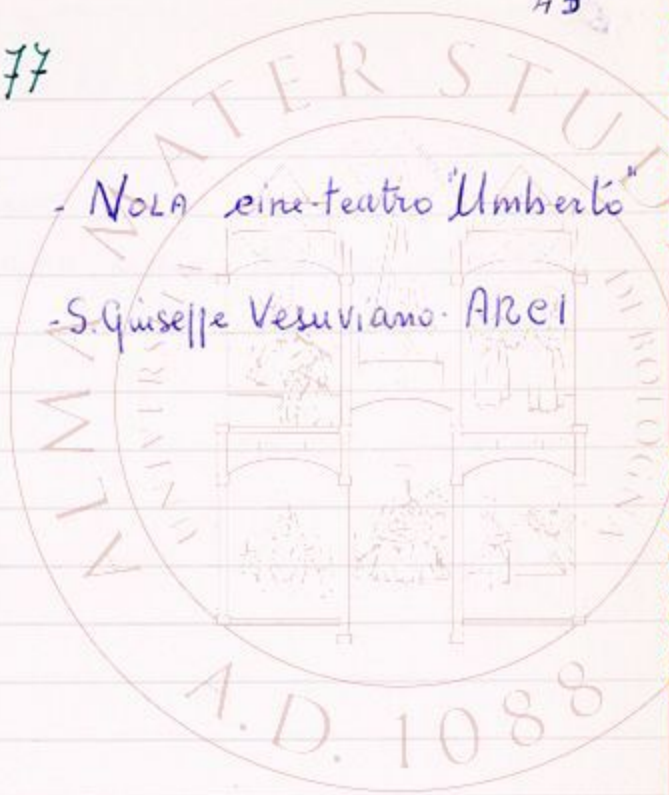 77
- NOLA cine-teatro "Umberto"
- S. Giuseppe Vesuviano. ARCI
ALMA MATER STUD
UNIVERSI DI BOLOGNA
A.D. 1088